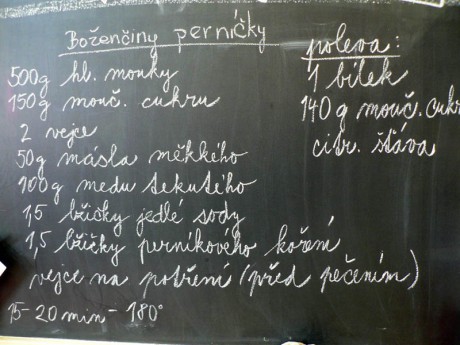 Boženčiny perníčky
500g hl. mouky
150g mouč. cukru
2 vejce
50g másla měkkého
100g medu tekutého
1,5 lžičky jedlé sody
1,5 lžičky perníkového koření
vejce na potření (před pečením)
15-20 min - 180°
poleva:
1 bílek
140 g mouč. cukr
citr. šťáva